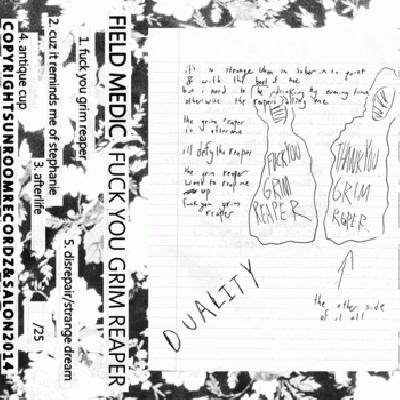 FIELD MEDIC FUCK YOU GRIM REAPER
1. fuck you grim reaper
2. cuz it reminds me of stephanie
3. afterlife
4. antique cup
5. disrepair/strange dream
/25
COPYRIGHTSUNROOMRECORDZ&SALON2014
it's a strange when im sober im so quiet
& with the best of me
but i need to be drinking by evening time
otherwise the reapers calling me
the grim reaper
is after me
ill defy the reaper
the grim reaper
want to reap me
up
fuck you grim
reaper
FUCK YOU
GRIM
REAPER
THANK YOU
GRIM
REAPER
DUALITY
the other side
of it all